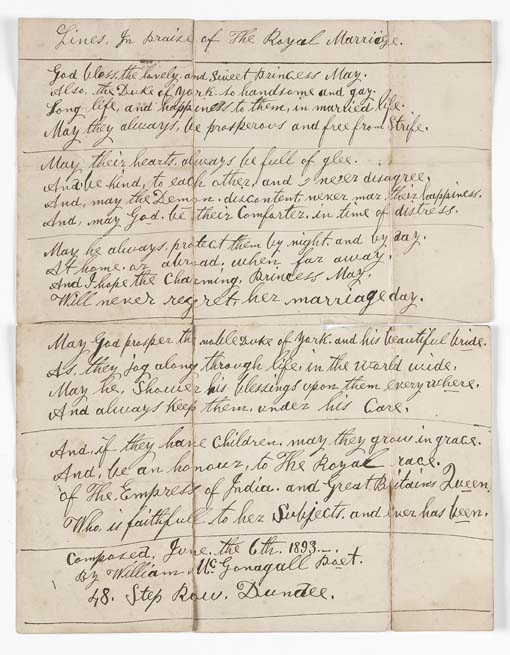 Lines, In Praise of The Royal Marriage.
God bless, the lovely, and Sweet Princess May.
Also, the Duke of York. so handsome and gay.
Long life, and happiness to them, in married life.
May they always, be prosperous and free from Strife.
May, their hearts, always be full of glee.
And be kind, to each other, and never disagree.
And, may the Demon. discontent, never mar their happiness.
And, may God. be their Comforter, in time of distress.
May he always, protect them by night, and by day.
At home. or abroad, when far away.
And I hope the Charming, Princess May.
Will never regret, her marriage day.
May God prosper the noble Duke of York. and his beautiful bride.
As, they jog along through life, in the world wide.
May he, Shower his blessings upon them everywhere.
And always keep them, under his Care.
And, if they have Children. may they grow in grace.
And, be an honour, to The Royal race.
Of The Empress of India. and Great Britain's Queen.
Who, is faithfull to her Subjects. and ever has been.
Composed, June, the 6th. 1893.
By William Mc. Gonagall Poet.
48. Step Row. Dundee.